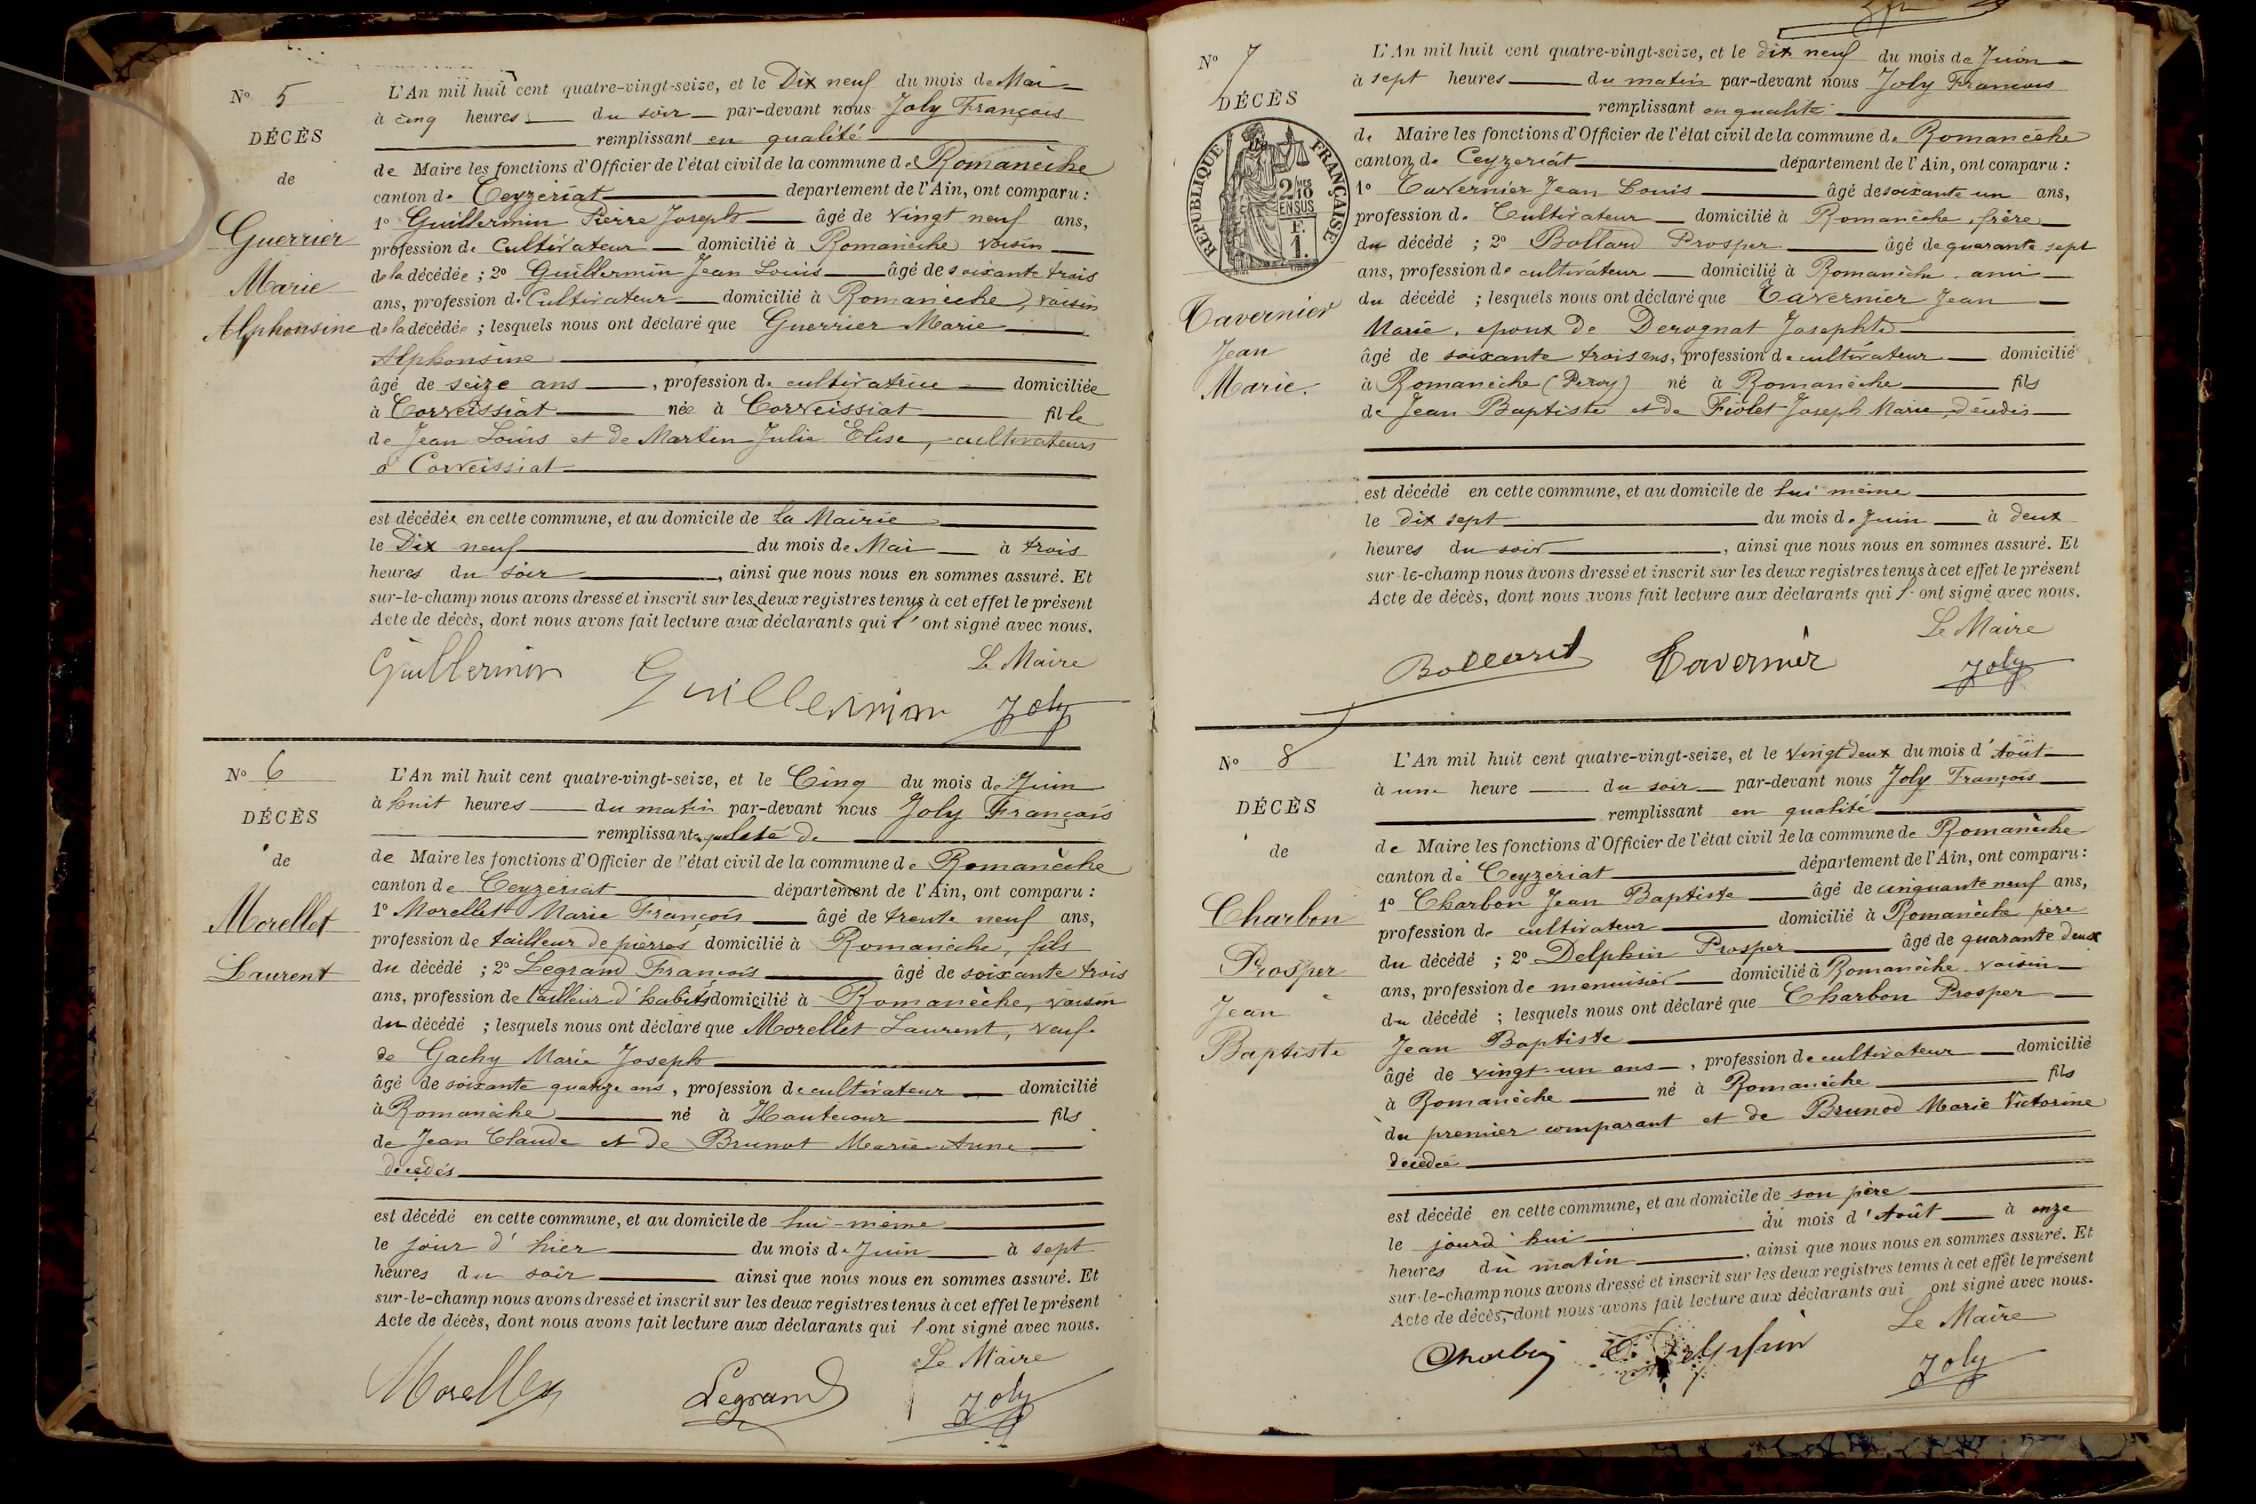 N° 5
DÉCÈS
de
Guerrier
Marie
Alphonsine
L'An mil huit cent quatre-vingt-seize, et le Dix neuf du mois de Mai
à cinq heures du soir par-devant nous Joly François
remplissant en qualité
de Maire les fonctions d'Officier de l'état civil de la commune de Romanèche
canton de Ceyzeriat departement de l'Ain, ont comparu :
1° Guillermin Pierre Joseph âgé de vingt neuf ans,
profession de Cultivateur domicilié à Romanèche voisin
de la décédée ; 2° Guillermin Jean Louis âgé de soixante trois
ans, profession de Cultivateur domicilié à Romanèche, voisin
de la décédée ; lesquels nous ont déclaré que Guerrier Marie
Alphonsine
âgé de seize ans, profession de cultivatrice domiciliée
à Corveissiat née à Corveissiat fille
de Jean Louis et de Martin Julie Elise, cultivateurs
à Corveissiat
est décédée en cette commune, et au domicile de la Mairie
le Dix neuf du mois de Mai à trois
heures du soir, ainsi que nous nous en sommes assuré. Et
sur-le-champ nous avons dressé et inscrit sur les deux registres tenus à cet effet le présent
Acte de décès, dont nous avons fait lecture aux déclarants qui l' ont signé avec nous.
Le Maire
Guillermin Guillermin Joly
N° 6
DÉCÈS
de
Morellet
Laurent
L'An mil huit cent quatre-vingt-seize, et le Cinq du mois de Juin
à huit heures du matin par-devant nous Joly François
remplissant en qualité de
de Maire les fonctions d'Officier de l'état civil de la commune de Romanèche
canton de Ceyzeriat département de l'Ain, ont comparu :
1° Morellet Marie François âgé de trente neuf ans,
profession de tailleur de pierres, domicilié à Romanèche, fils
du décédé ; 2° Legrand François âgé de soixante trois
ans, profession de tailleur d'habits domicilié à Romanèche, voisin
du décédé ; lesquels nous ont déclaré que Morellet Laurent, veuf
de Gachy Marie Joseph
âgé de soixante quatorze ans, profession de cultivateur domicilié
à Romanèche né à Hautecour fils
de Jean Claude et de Brunot Marie Anne
décédés
est décédé en cette commune, et au domicile de lui-même
le jour d'hier du mois de Juin à sept
heures du soir ainsi que nous nous en sommes assuré. Et
sur-le-champ nous avons dressé et inscrit sur les deux registres tenus à cet effet le présent
Acte de décès, dont nous avons fait lecture aux déclarants qui l'ont signé avec nous.
Le Maire
Morellet Legrand Joly
N° 7
DÉCÈS
RÉPUBLIQUE FRANÇAISE
2/10 EN SUS
F. 1.
Tavernier
Jean
Marie.
L'An mil huit cent quatre-vingt-seize, et le dix neuf du mois de Juin
à sept heures du matin par-devant nous Joly François
remplissant en qualité
de Maire les fonctions d'Officier de l'état civil de la commune de Romanèche
canton de Ceyzeriat département de l'Ain, ont comparu :
1° Tavernier Jean Louis âgé de soixante un ans,
profession de Cultivateur domicilié à Romanèche, frère
du décédé ; 2° Bolland Prosper âgé de quarante sept
ans, profession de cultivateur domicilié à Romanèche ami
du décédé ; lesquels nous ont déclaré que Tavernier Jean
Marie, époux de Derognat Josephte
âgé de soixante trois ans, profession de cultivateur domicilié
à Romanèche né à Romanèche fils
de Jean Baptiste et de Fiolet Joseph Marie, décédés
est décédé en cette commune, et au domicile de lui même
le dix sept du mois de Juin à deux
heures du soir, ainsi que nous nous en sommes assuré. Et
sur-le-champ nous avons dressé et inscrit sur les deux registres tenus à cet effet le présent
Acte de décès, dont nous avons fait lecture aux déclarants qui l' ont signé avec nous.
Le Maire
Bolland Tavernier Joly
N° 8
DÉCÈS
de
Charbon
Prosper
Jean
Baptiste
L'An mil huit cent quatre-vingt-seize, et le vingt deux du mois d'Août
à une heure du soir par-devant nous Joly François
remplissant en qualité
de Maire les fonctions d'Officier de l'état civil de la commune de Romanèche
canton de Ceyzeriat département de l'Ain, ont comparu :
1° Charbon Jean Baptiste âgé de cinquante neuf ans,
profession de cultivateur domicilié à Romanèche père
du décédé ; 2° Delphin Prosper âgé de quarante deux
ans, profession de menuisier domicilié à Romanèche voisin
du décédé ; lesquels nous ont déclaré que Charbon Prosper
Jean Baptiste
âgé de vingt-un ans, profession de cultivateur domicilié
à Romanèche né à Romanèche fils
du premier comparant et de Brunod Marie Victorine
décédée
est décédé en cette commune, et au domicile de son père
le jourd'hui du mois d'Août à onze
heures du matin, ainsi que nous nous en sommes assuré. Et
sur-le-champ nous avons dressé et inscrit sur les deux registres tenus à cet effet le présent
Acte de décès, dont nous avons fait lecture aux déclarants qui ont signé avec nous.
Le Maire
Charbon Delphin Joly